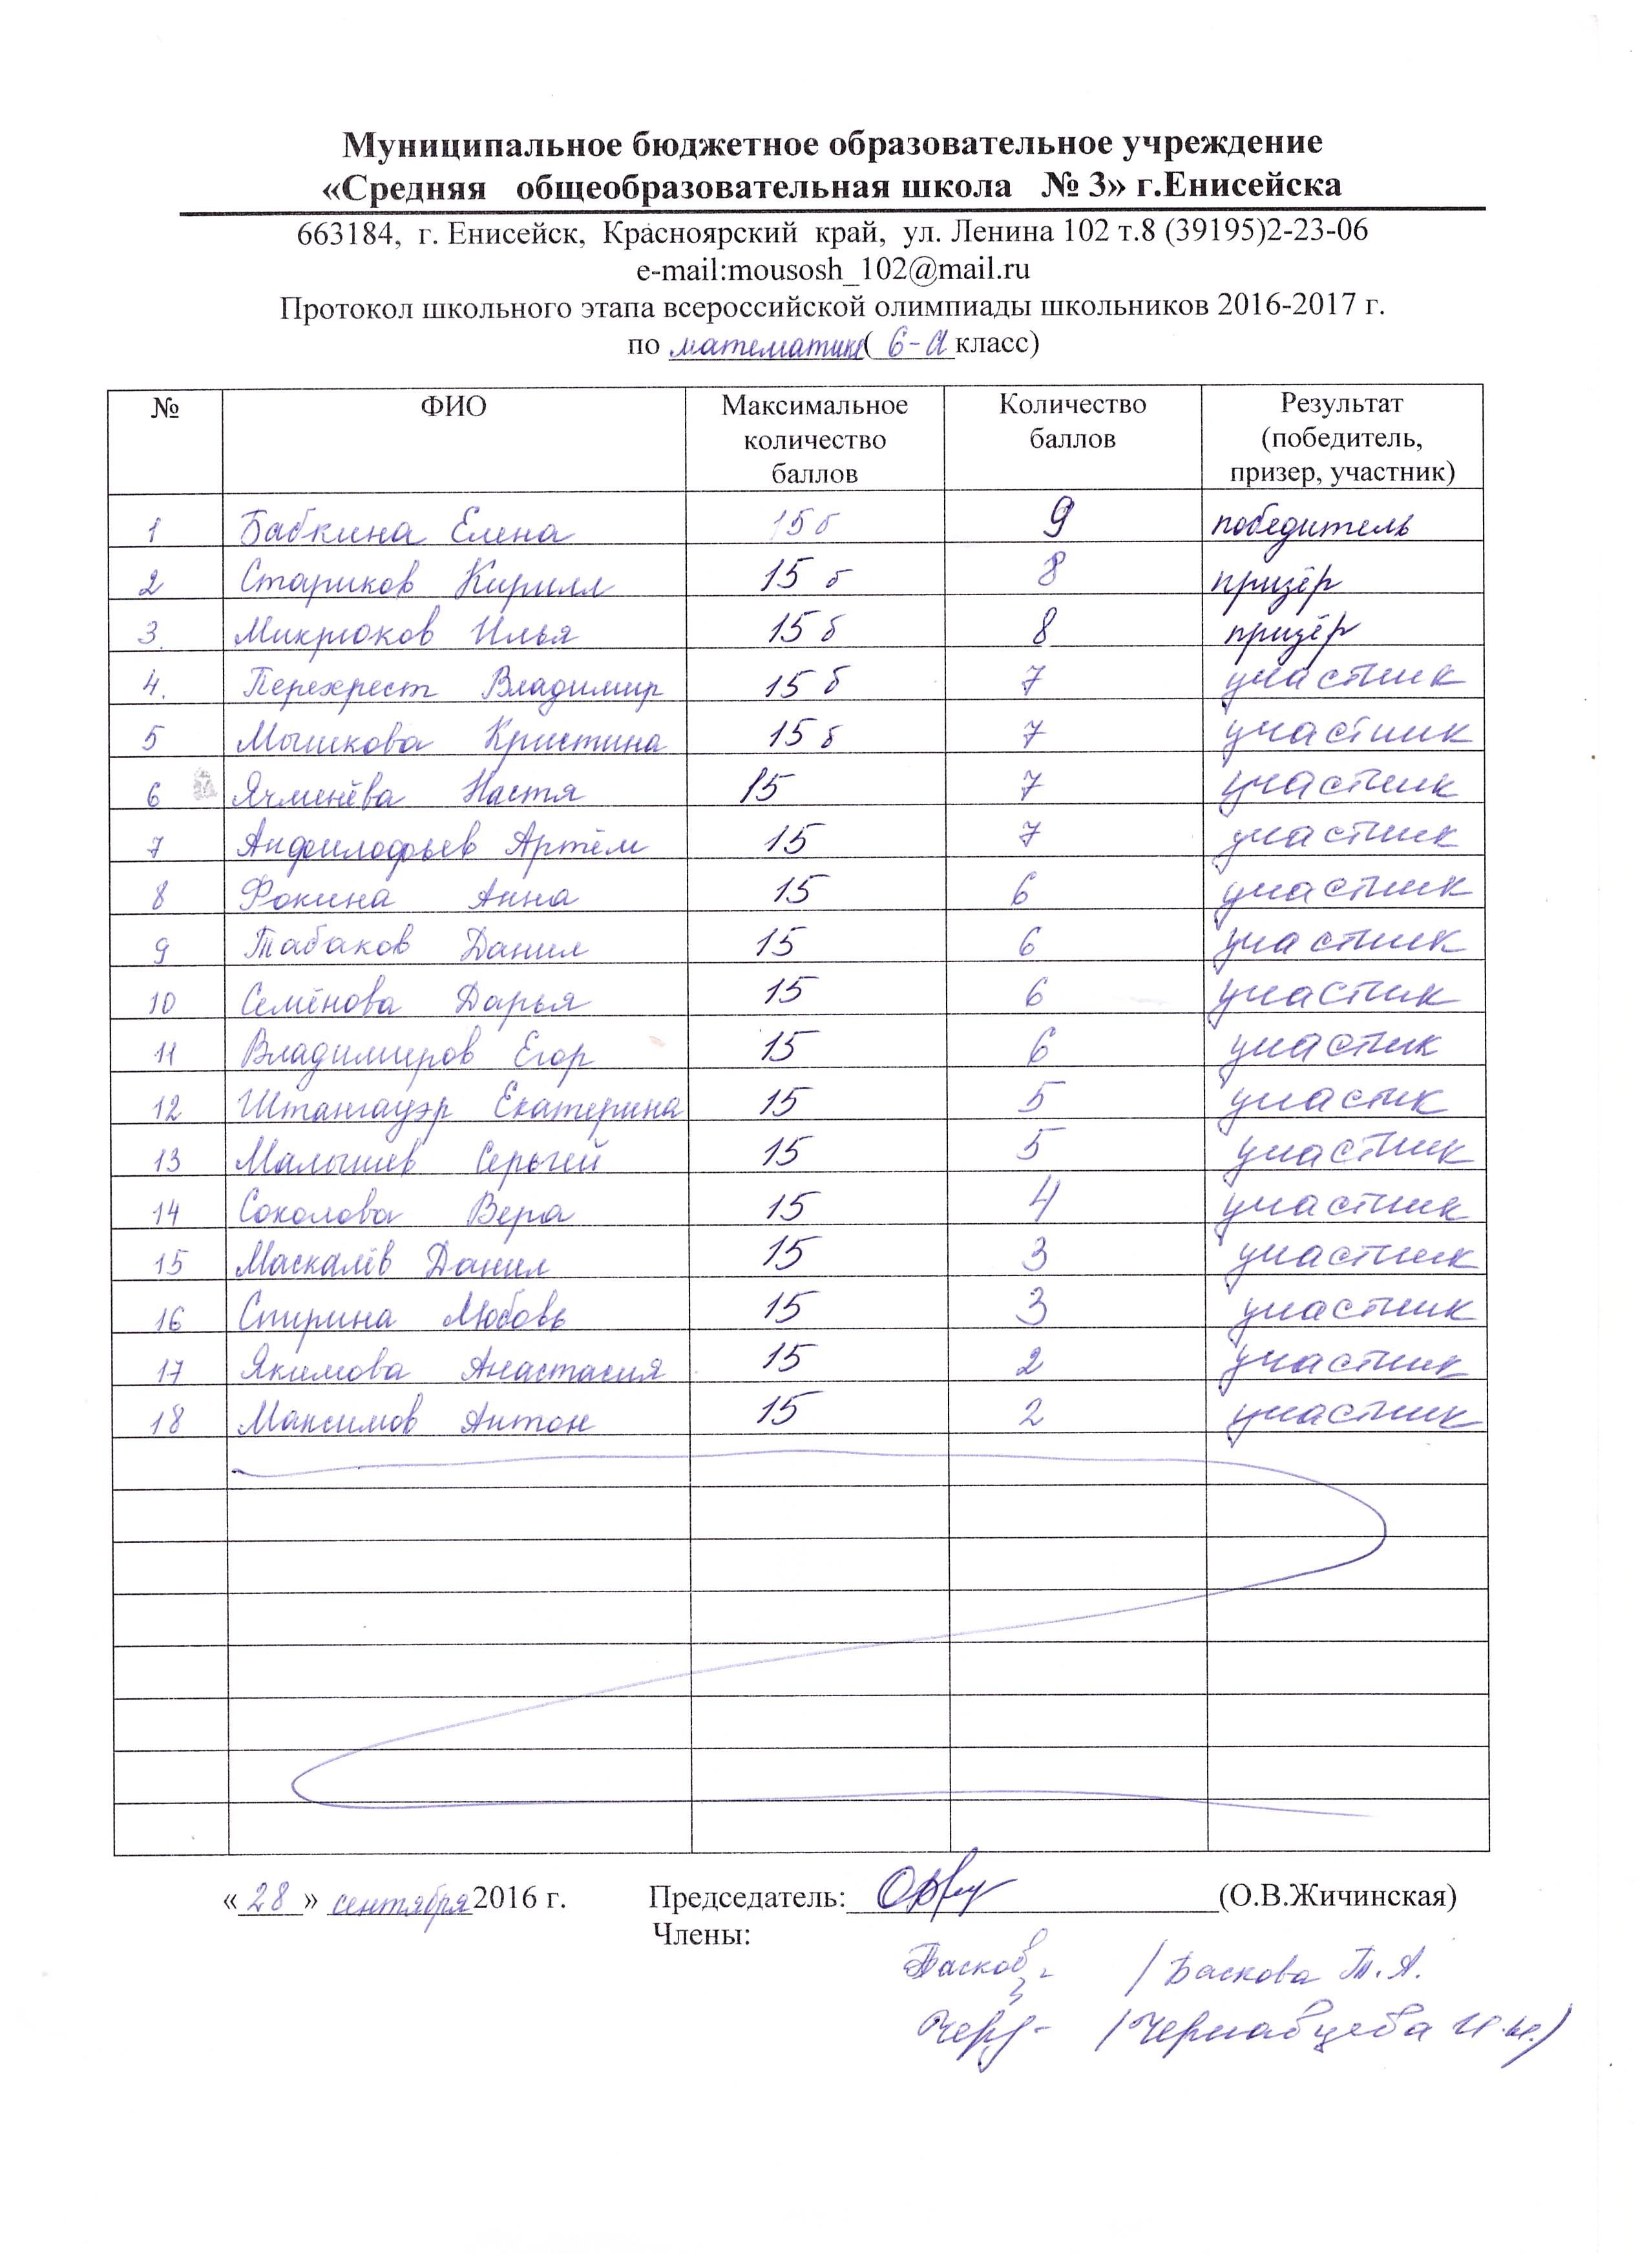 Муниципальное бюджетное образовательное учреждение
«Средняя общеобразовательная школа № 3» г.Енисейска
663184, г. Енисейск, Красноярский край, ул. Ленина 102 т.8 (39195)2-23-06
e-mail:mousosh_102@mail.ru
Протокол школьного этапа всероссийской олимпиады школьников 2016-2017 г.
по математике( 6-а класс)
№ ФИО Максимальное количество баллов Количество баллов Результат (победитель, призер, участник)
1 Бабкина Елена 15 б 9 победитель
2 Стариков Кирилл 15 б 8 призёр
3. Микрюков Илья 15 б 8 призёр
4. Перехрест Владимир 15 б 7 участник
5 Мышкова Кристина 15 б 7 участник
6 Ячменёва Настя 15 7 участник
7 Артём 15 7 участник
8 Фокина Анна 15 6 участник
9 Табаков Данил 15 6 участник
10 Семёнова Дарья 15 6 участник
11 Владимиров Егор 15 6 участник
12 Штангауэр Екатерина 15 5 участик
13 Малышев Серьгей 15 5 участник
14 Соколова Вера 15 4 участник
15 Маскалёв Данил 15 3 участник
16 Спирина Любовь 15 3 участник
17 Якимова Анастасия 15 2 участник
18 Максимов Антон 15 2 участник
«28» сентября 2016 г. Председатель: (О.В.Жичинская)
Члены:
/ Баскова Т.А.
(Чернавцева И.И.)